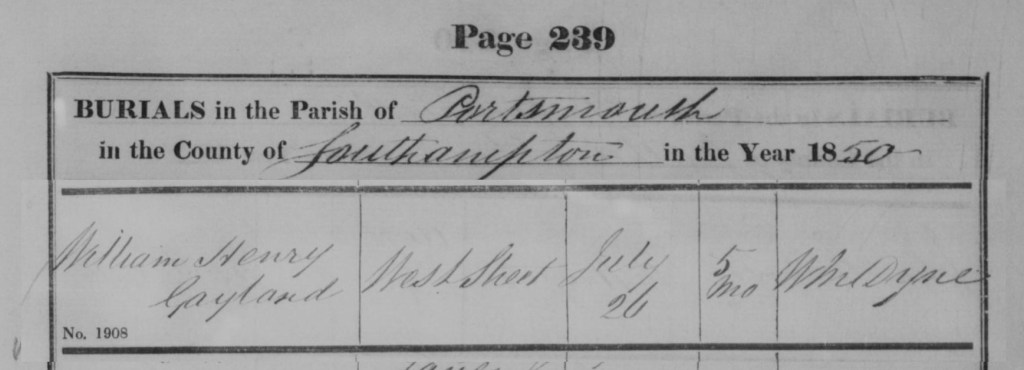 Page 239
BURIALS in the Parish of Portsmouth
in the County of Southampton in the Year 1850
William Henry
Gayland
West Street
July
26
5
mo
Wm Dyne
No. 1908